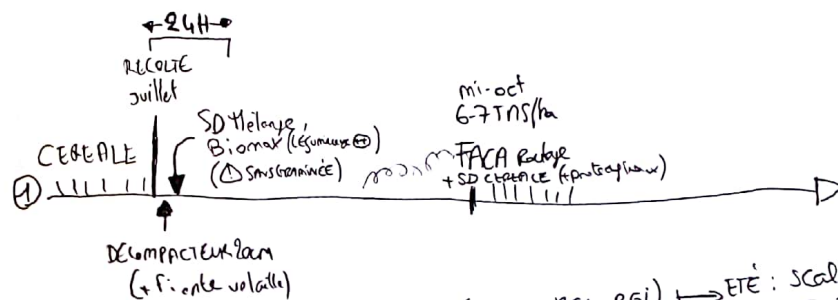 24H
RECOLTE
Juillet
mi-oct
6-7 TMS/ha
SD Mélange
Biomax (Légumineux ⊕)
(⚠ SANS GRAMINÉE)
CEREALE
FACA Roulage
+ SD CEREALE (+ protéagineux)
1
DECOMPACTEUR 20cm
(+ Fiente volaille)
ETÉ : Scal